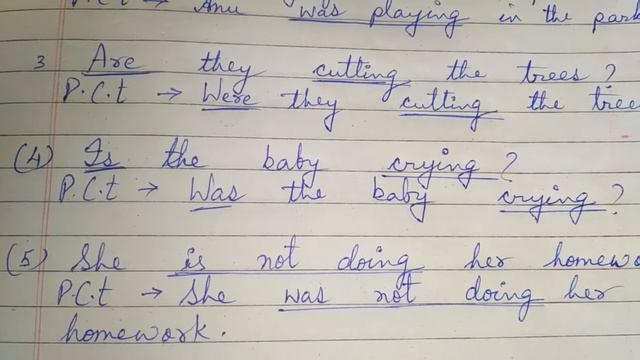 P.C.t → Anu was playing in the park
3 Are they cutting the trees ?
P.C.t → Were they cutting the tree
(4) Is the baby crying ?
P.C.t → Was the baby crying ?
(5) She is not doing her homewo
P.C.t → She was not doing her
homework.